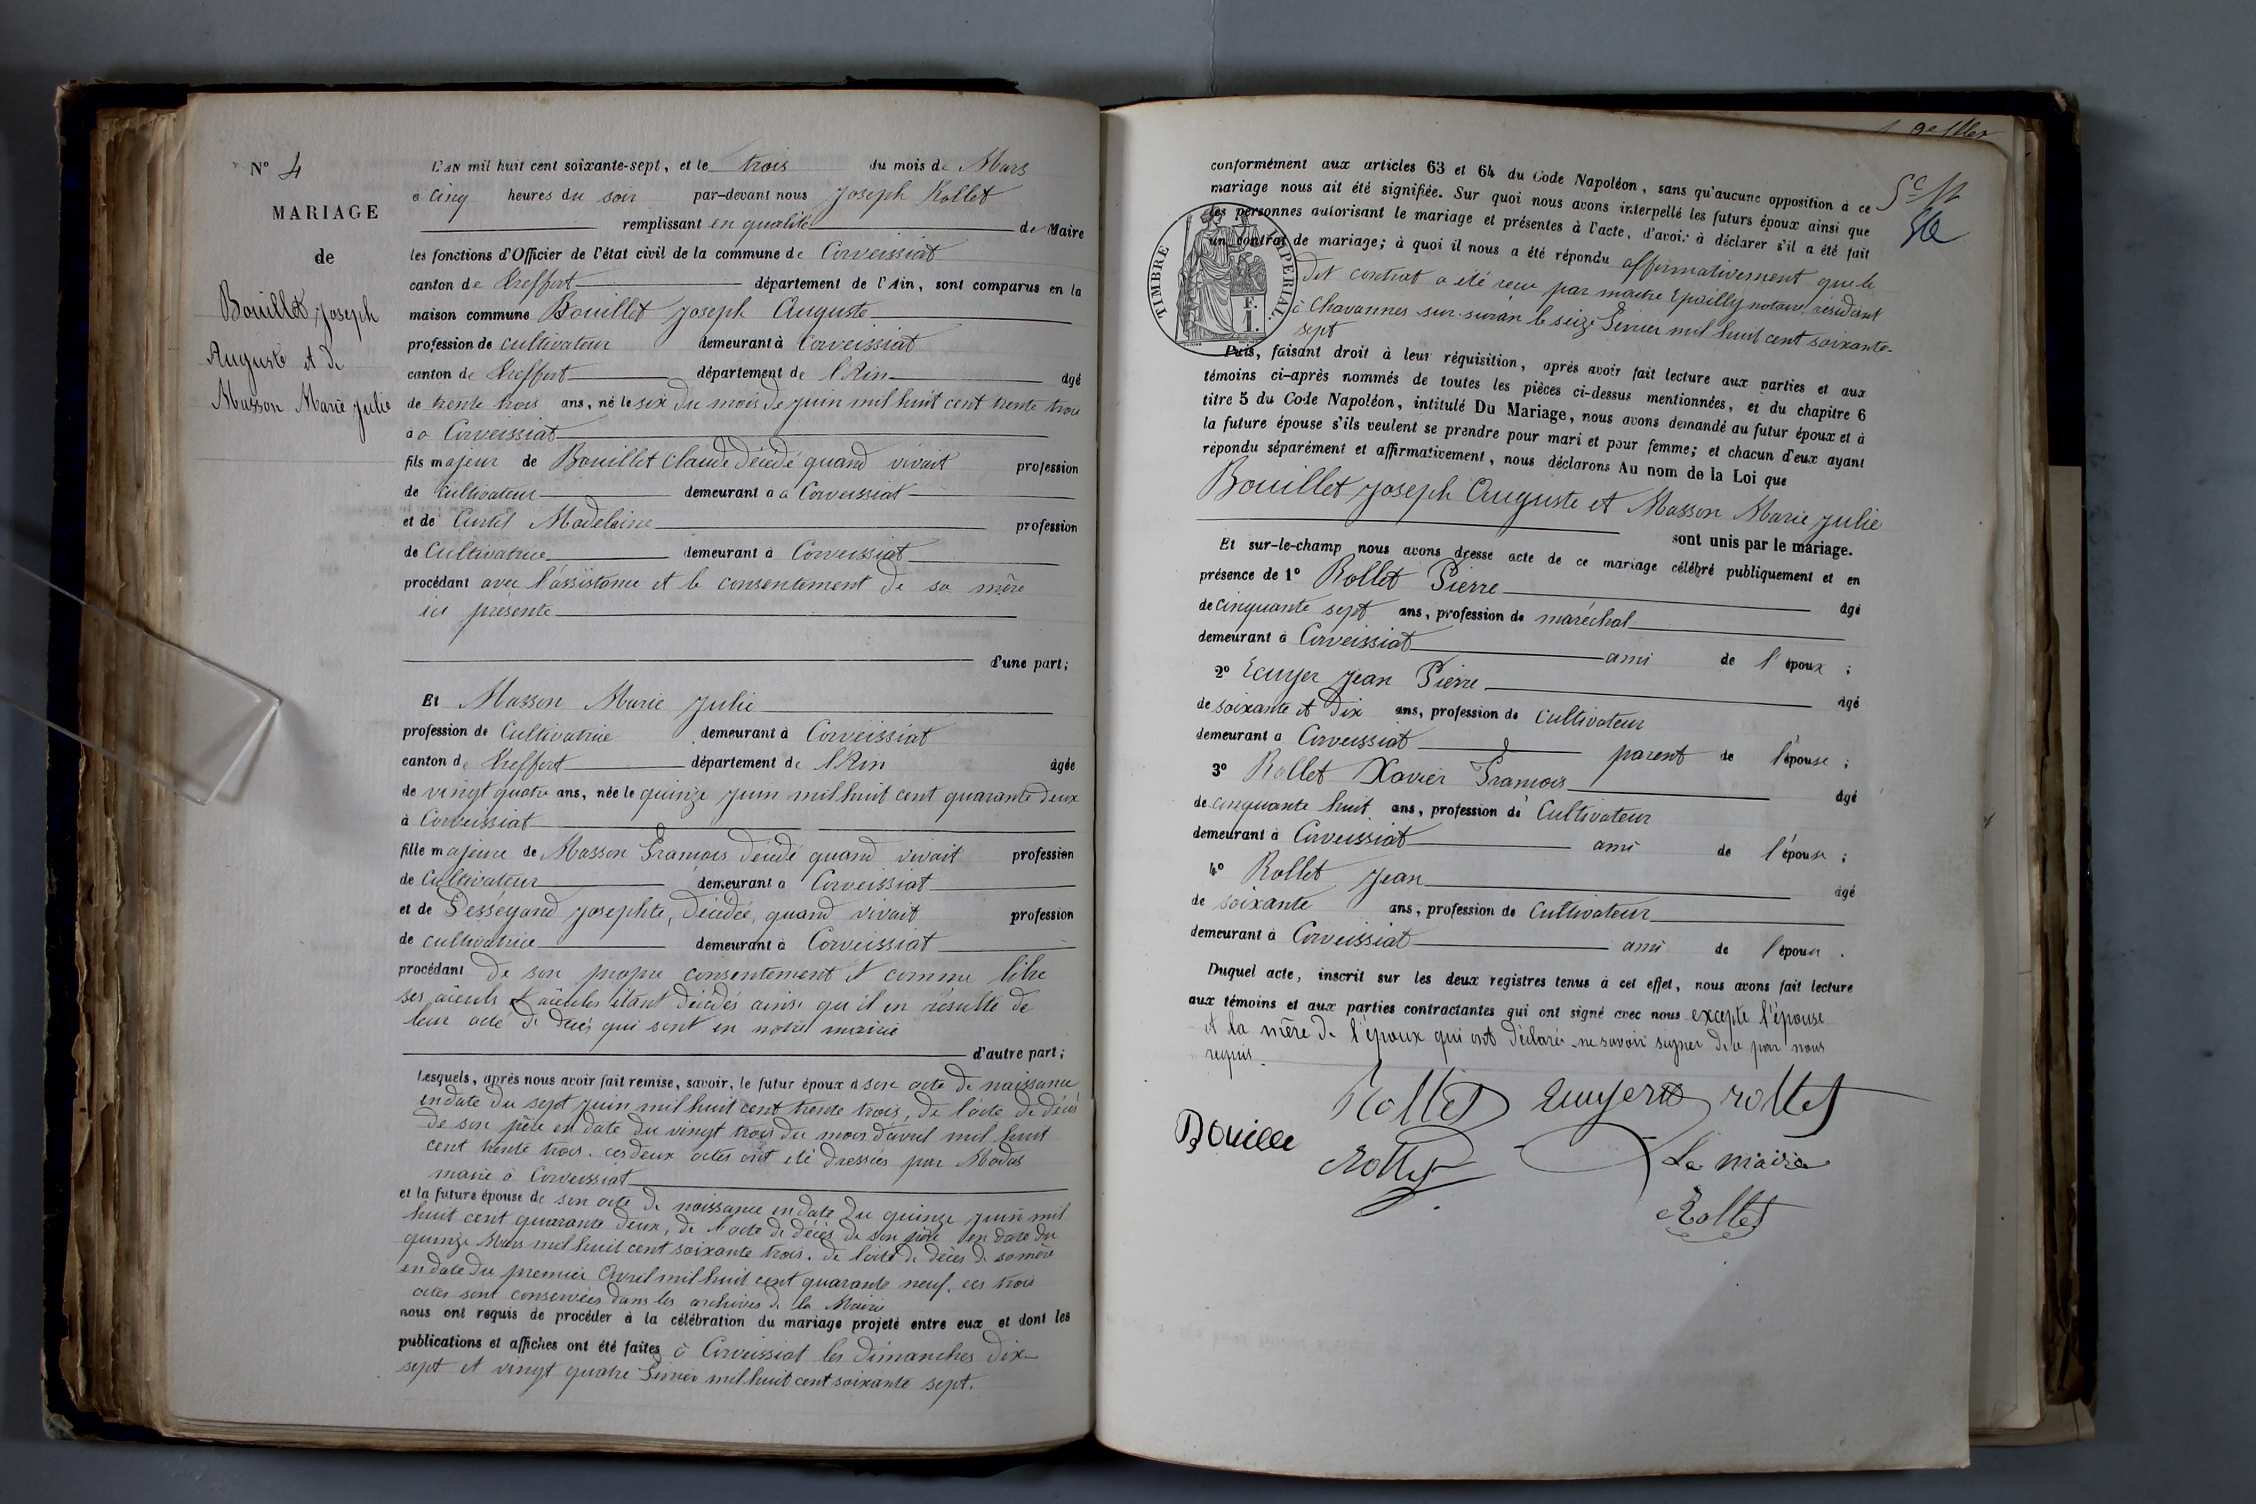 N° 4
MARIAGE
de
Bouillet Joseph
Auguste et de
Masson Marie Julie
L'AN mil huit cent soixante-sept, et le trois du mois de Mars
à cinq heures du soir par-devant nous Joseph Rollet
remplissant en qualité de Maire
les fonctions d'Officier de l'état civil de la commune de Corveissiat
canton de Treffort département de l'Ain, sont comparus en la
maison commune Bouillet Joseph Auguste
profession de cultivateur demeurant à Corveissiat
canton de Treffort département de l'Ain âgé
de trente trois ans, né le six du mois de Juin mil huit cent trente trois
à Corveissiat
fils majeur de Bouillet Claude décédé quand vivait profession
de cultivateur demeurant à Corveissiat
et de Curtil Madelaine profession
de Cultivatrice demeurant à Corveissiat
procédant avec l'assistance et le consentement de sa mère
ici présente
d'une part;
Et Masson Marie Julie
profession de Cultivatrice demeurant à Corveissiat
canton de Treffort département de l'Ain âgée
de vingt quatre ans, née le quinze Juin mil huit cent quarante deux
à Corveissiat
fille majeure de Masson François décédé quand vivait profession
de Cultivateur demeurant à Corveissiat
et de Josephte, décédée, quand vivait profession
de cultivatrice demeurant à Corveissiat
procédant de son propre consentement et comme libre
ses aïeuls et aïeules étant décédés ainsi qu'il en résulte de
leur acte de décès qui sont en notre mairie
d'autre part;
Lesquels, après nous avoir fait remise, savoir, le futur époux d son acte de naissance
en date du sept Juin mil huit cent trente trois, de l'acte de décès
de son père en date du vingt trois du mois d'avril mil huit
cent trente trois. ces deux actes ont été dressés par Modas
maire à Corveissiat
et la future épouse de son acte de naissance en date du quinze Juin mil
huit cent quarante deux, de l'acte de décès de son père en date du
quinze Mars mil huit cent soixante trois. de l'acte de décès de sa mère
en date du premier Avril mil huit cent quarante neuf. ces trois
actes sont conservées dans les archives de la Mairie
nous ont requis de procéder à la célébration du mariage projeté entre eux et dont les
publications et affiches ont été faites à Corveissiat les dimanches dix-
sept et vingt quatre Févrer mil huit cent soixante sept.
conformément aux articles 63 et 64 du Code Napoléon, sans qu'aucune opposition à ce
mariage nous ait été signifiée. Sur quoi nous avons interpellé les futurs époux ainsi que
les personnes autorisant le mariage et présentes à l'acte, d'avoir à déclarer s'il a été fait
un contrat de mariage; à quoi il nous a été répondu affirmativement que le
dit contrat a été recu par maitre Epailly notaire résidant
à Chavannes sur suran le seize Févrer mil huit cent soixante-
sept
TIMBRE IMPERIAL.
1 F.
Puis, faisant droit à leur réquisition, après avoir fait lecture aux parties et aux
témoins ci-après nommés de toutes les pièces ci-dessus mentionnées, et du chapitre 6
titre 5 du Code Napoléon, intitulé Du Mariage, nous avons demandé au futur époux et à
la future épouse s'ils veulent se prendre pour mari et pour femme; et chacun d'eux ayant
répondu séparément et affirmativement, nous déclarons Au nom de la Loi que
Bouillet Joseph Auguste et Masson Marie Julie
sont unis par le mariage.
Et sur-le-champ nous avons dressé acte de ce mariage célébré publiquement et en
présence de 1° Rollet Pierre âgé
de cinquante sept ans, profession de maréchal
demeurant à Corveissiat ami de l'époux ;
2° Ecuyer Jean Pierre âgé
de soixante et dix ans, profession de cultivateur
demeurant à Corveissiat parent de l'épouse ;
3° Rollet Xavier François âgé
de cinquante huit ans, profession de Cultivateur
demeurant à Corveissiat ami de l'épouse ;
4° Rollet Jean âgé
de soixante ans, profession de Cultivateur
demeurant à Corveissiat ami de l'époux .
Duquel acte, inscrit sur les deux registres tenus à cet effet, nous avons fait lecture
aux témoins et aux parties contractantes qui ont signé avec nous excepté l'épouse
et la mère de l'époux qui ont déclaré ne savoir signer de ce par nous
requis.
Rollet Ecuyer rollet
Bouille Rollet Le maire
Rollet